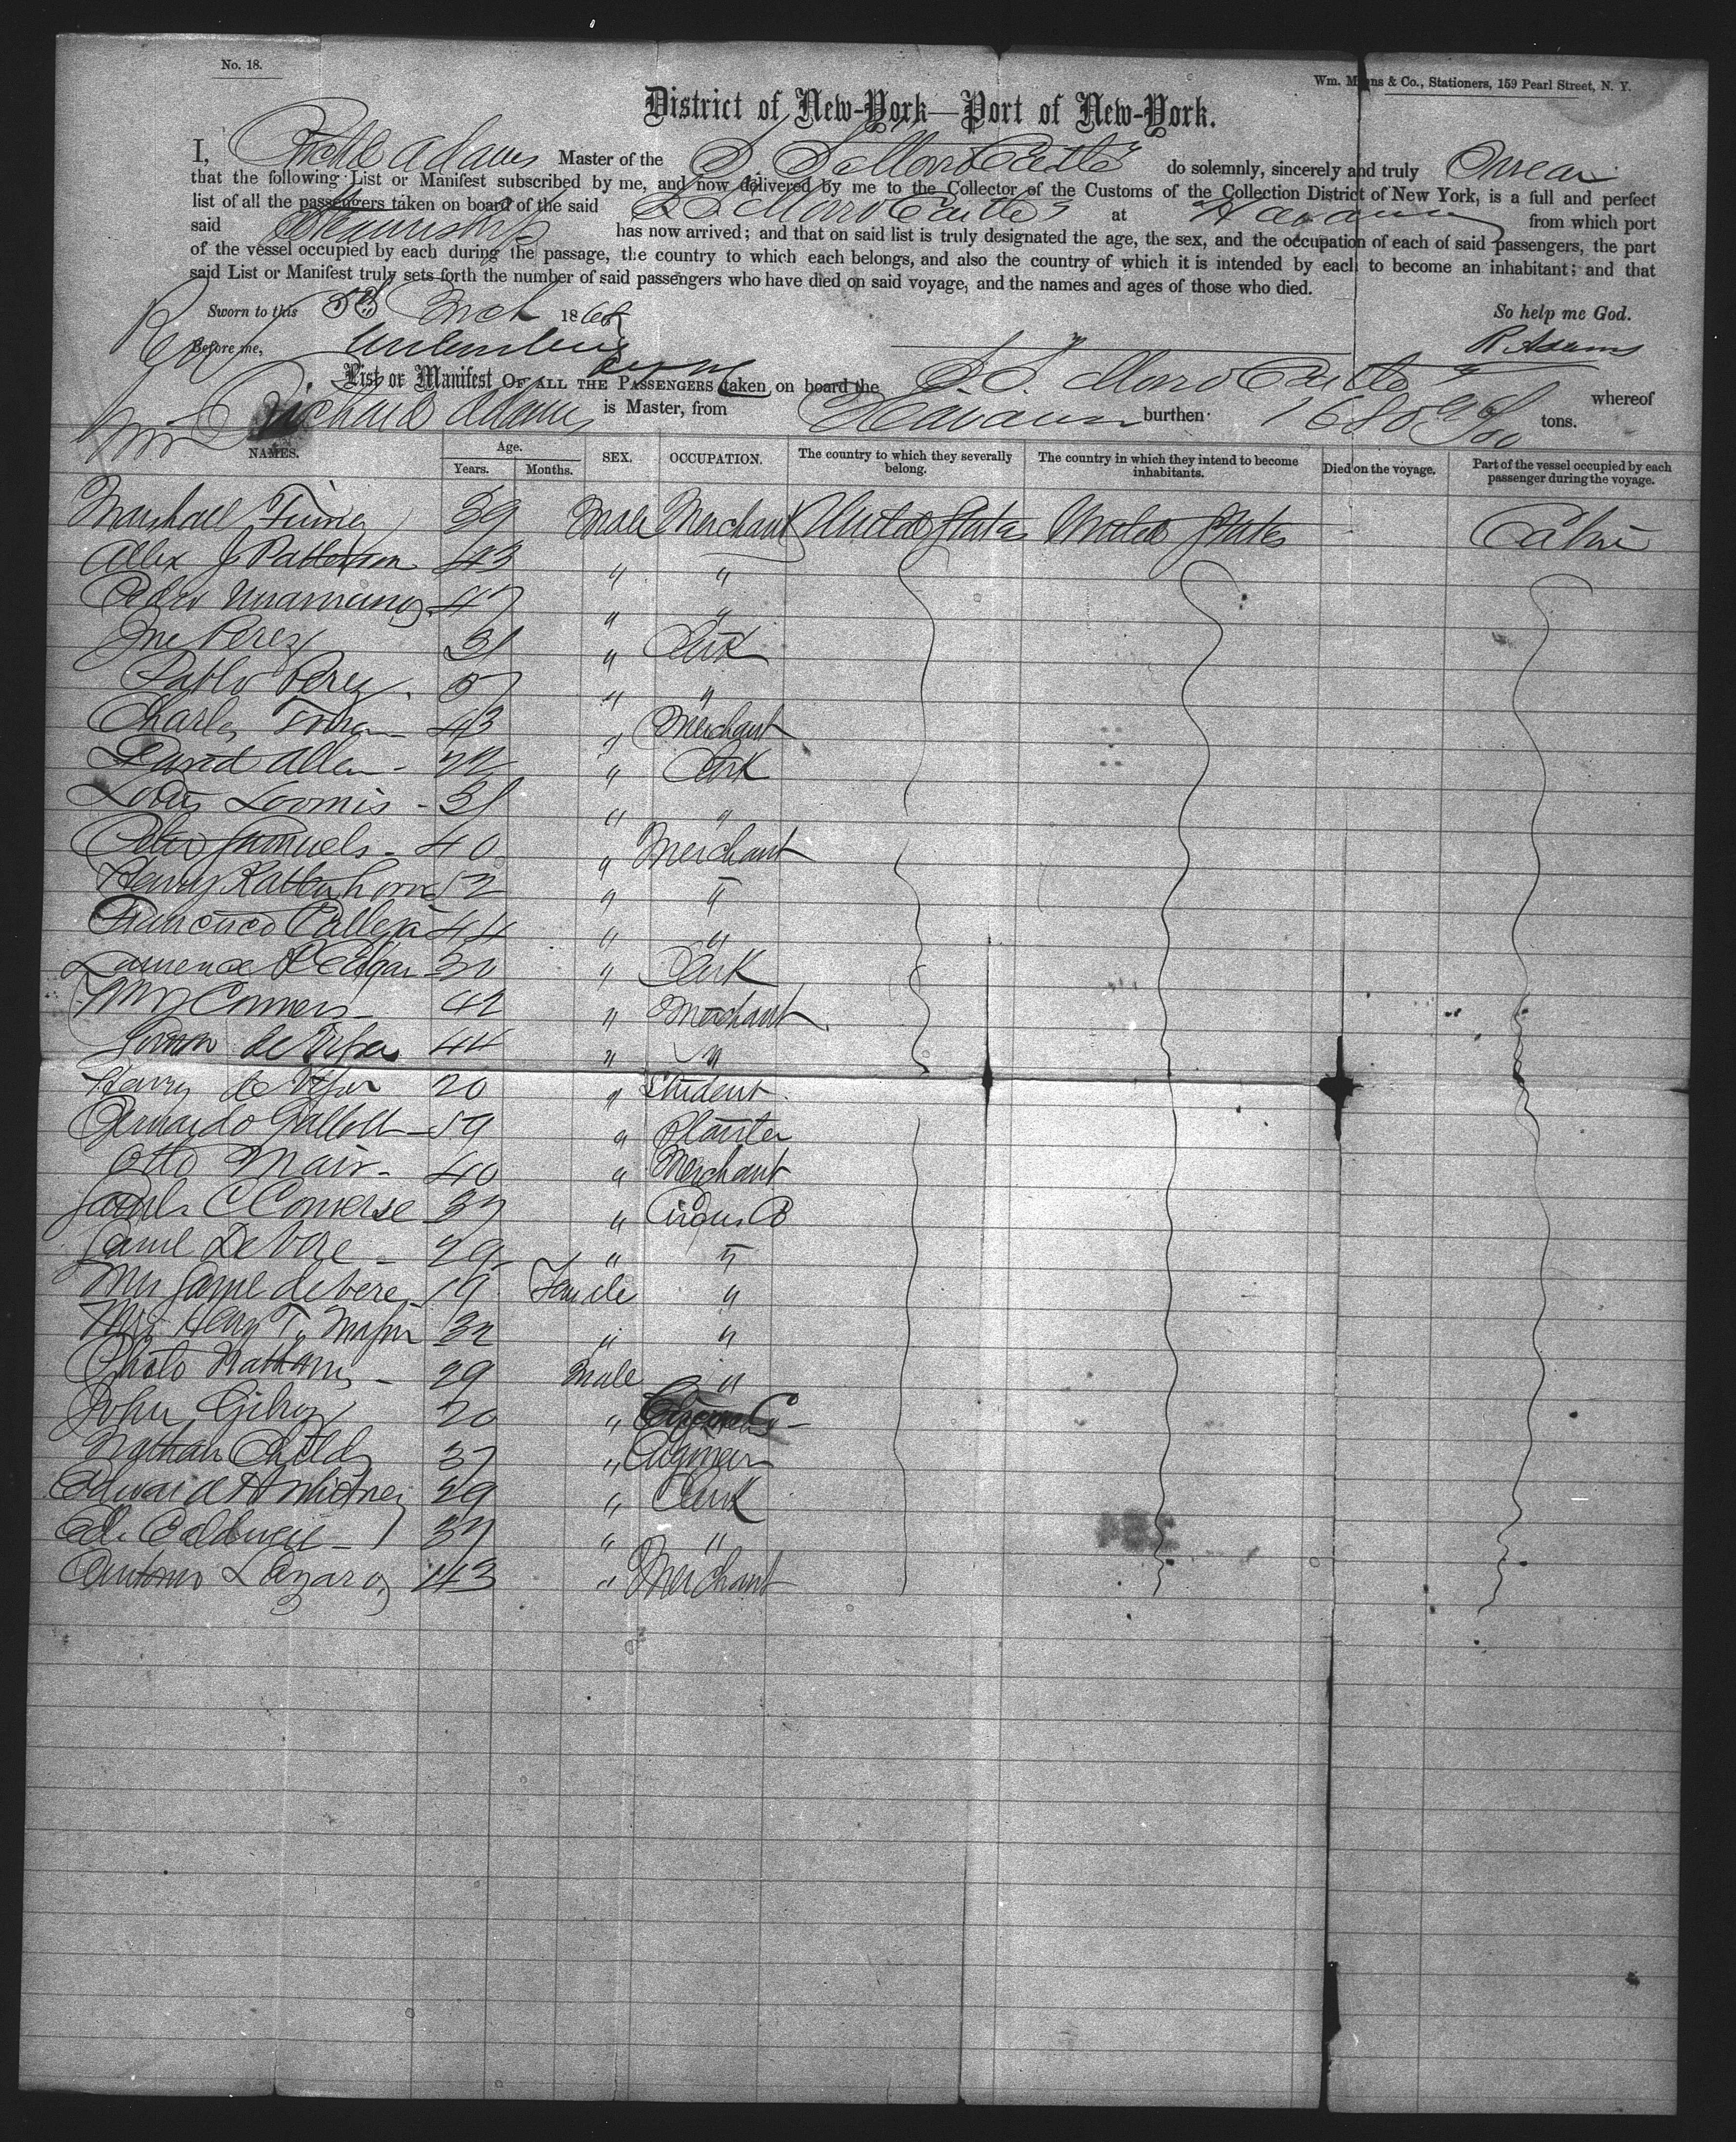 No. 18.
Wm. M ns & Co., Stationers, 159 Pearl Street, N. Y.
District of New-York—Port of New-York.
I, Richd Adams Master of the S. S. Morro Castle do solemnly, sincerely and truly Swear
that the following List or Manifest subscribed by me, and now delivered by me to the Collector of the Customs of the Collection District of New York, is a full and perfect
list of all the passengers taken on board of the said S S Morro Castle at Havana from which port
said Steamship has now arrived; and that on said list is truly designated the age, the sex, and the occupation of each of said passengers, the part
of the vessel occupied by each during the passage, the country to which each belongs, and also the country of which it is intended by each to become an inhabitant; and that
said List or Manifest truly sets forth the number of said passengers who have died on said voyage, and the names and ages of those who died.
Sworn to this Mch 186 So help me God.
Before me, R Adams
List or Manifest OF ALL THE PASSENGERS taken on board the S. S. Morro Castle whereof
Richard Adams is Master, from Havana burthen 1680 tons.
NAMES. Age. Years. Months. SEX. OCCUPATION. The country to which they severally belong. The country in which they intend to become inhabitants. Died on the voyage. Part of the vessel occupied by each passenger during the voyage.
Marshall 39 Male Merchant United States United States Cabin
Allex J Patterson 43 " "
Pedro 47 " "
Jne Perez 31 " Clerk
Pablo Perez 57 " "
Charles 43 " Merchant
David Allen - " Clerk
Louis Loomis - 31 " "
Peter Samuels - 40 " Merchant
Henry 52 " "
Francisco Palleja 44 " "
Laurence " Clerk
Wm J Conners - 42 " Merchant
Simon de Visser 44 " "
Henry de Visser 20 " Student
Bernardo - 59 " Planter
Otto Mair - 40 " Merchant
C Converse 37 " Circus
De Vere - 29 " "
Mrs de Vere 19 Female "
Mrs Henry T. Major 32 " "
Nathans - 29 Male "
John Gilroy 20 "
Nathan Childs 37 "
Edward H Whitney 29 " Clerk
Ed. Caldwell - 37 " "
Antonio Lazaro 43 " Merchant